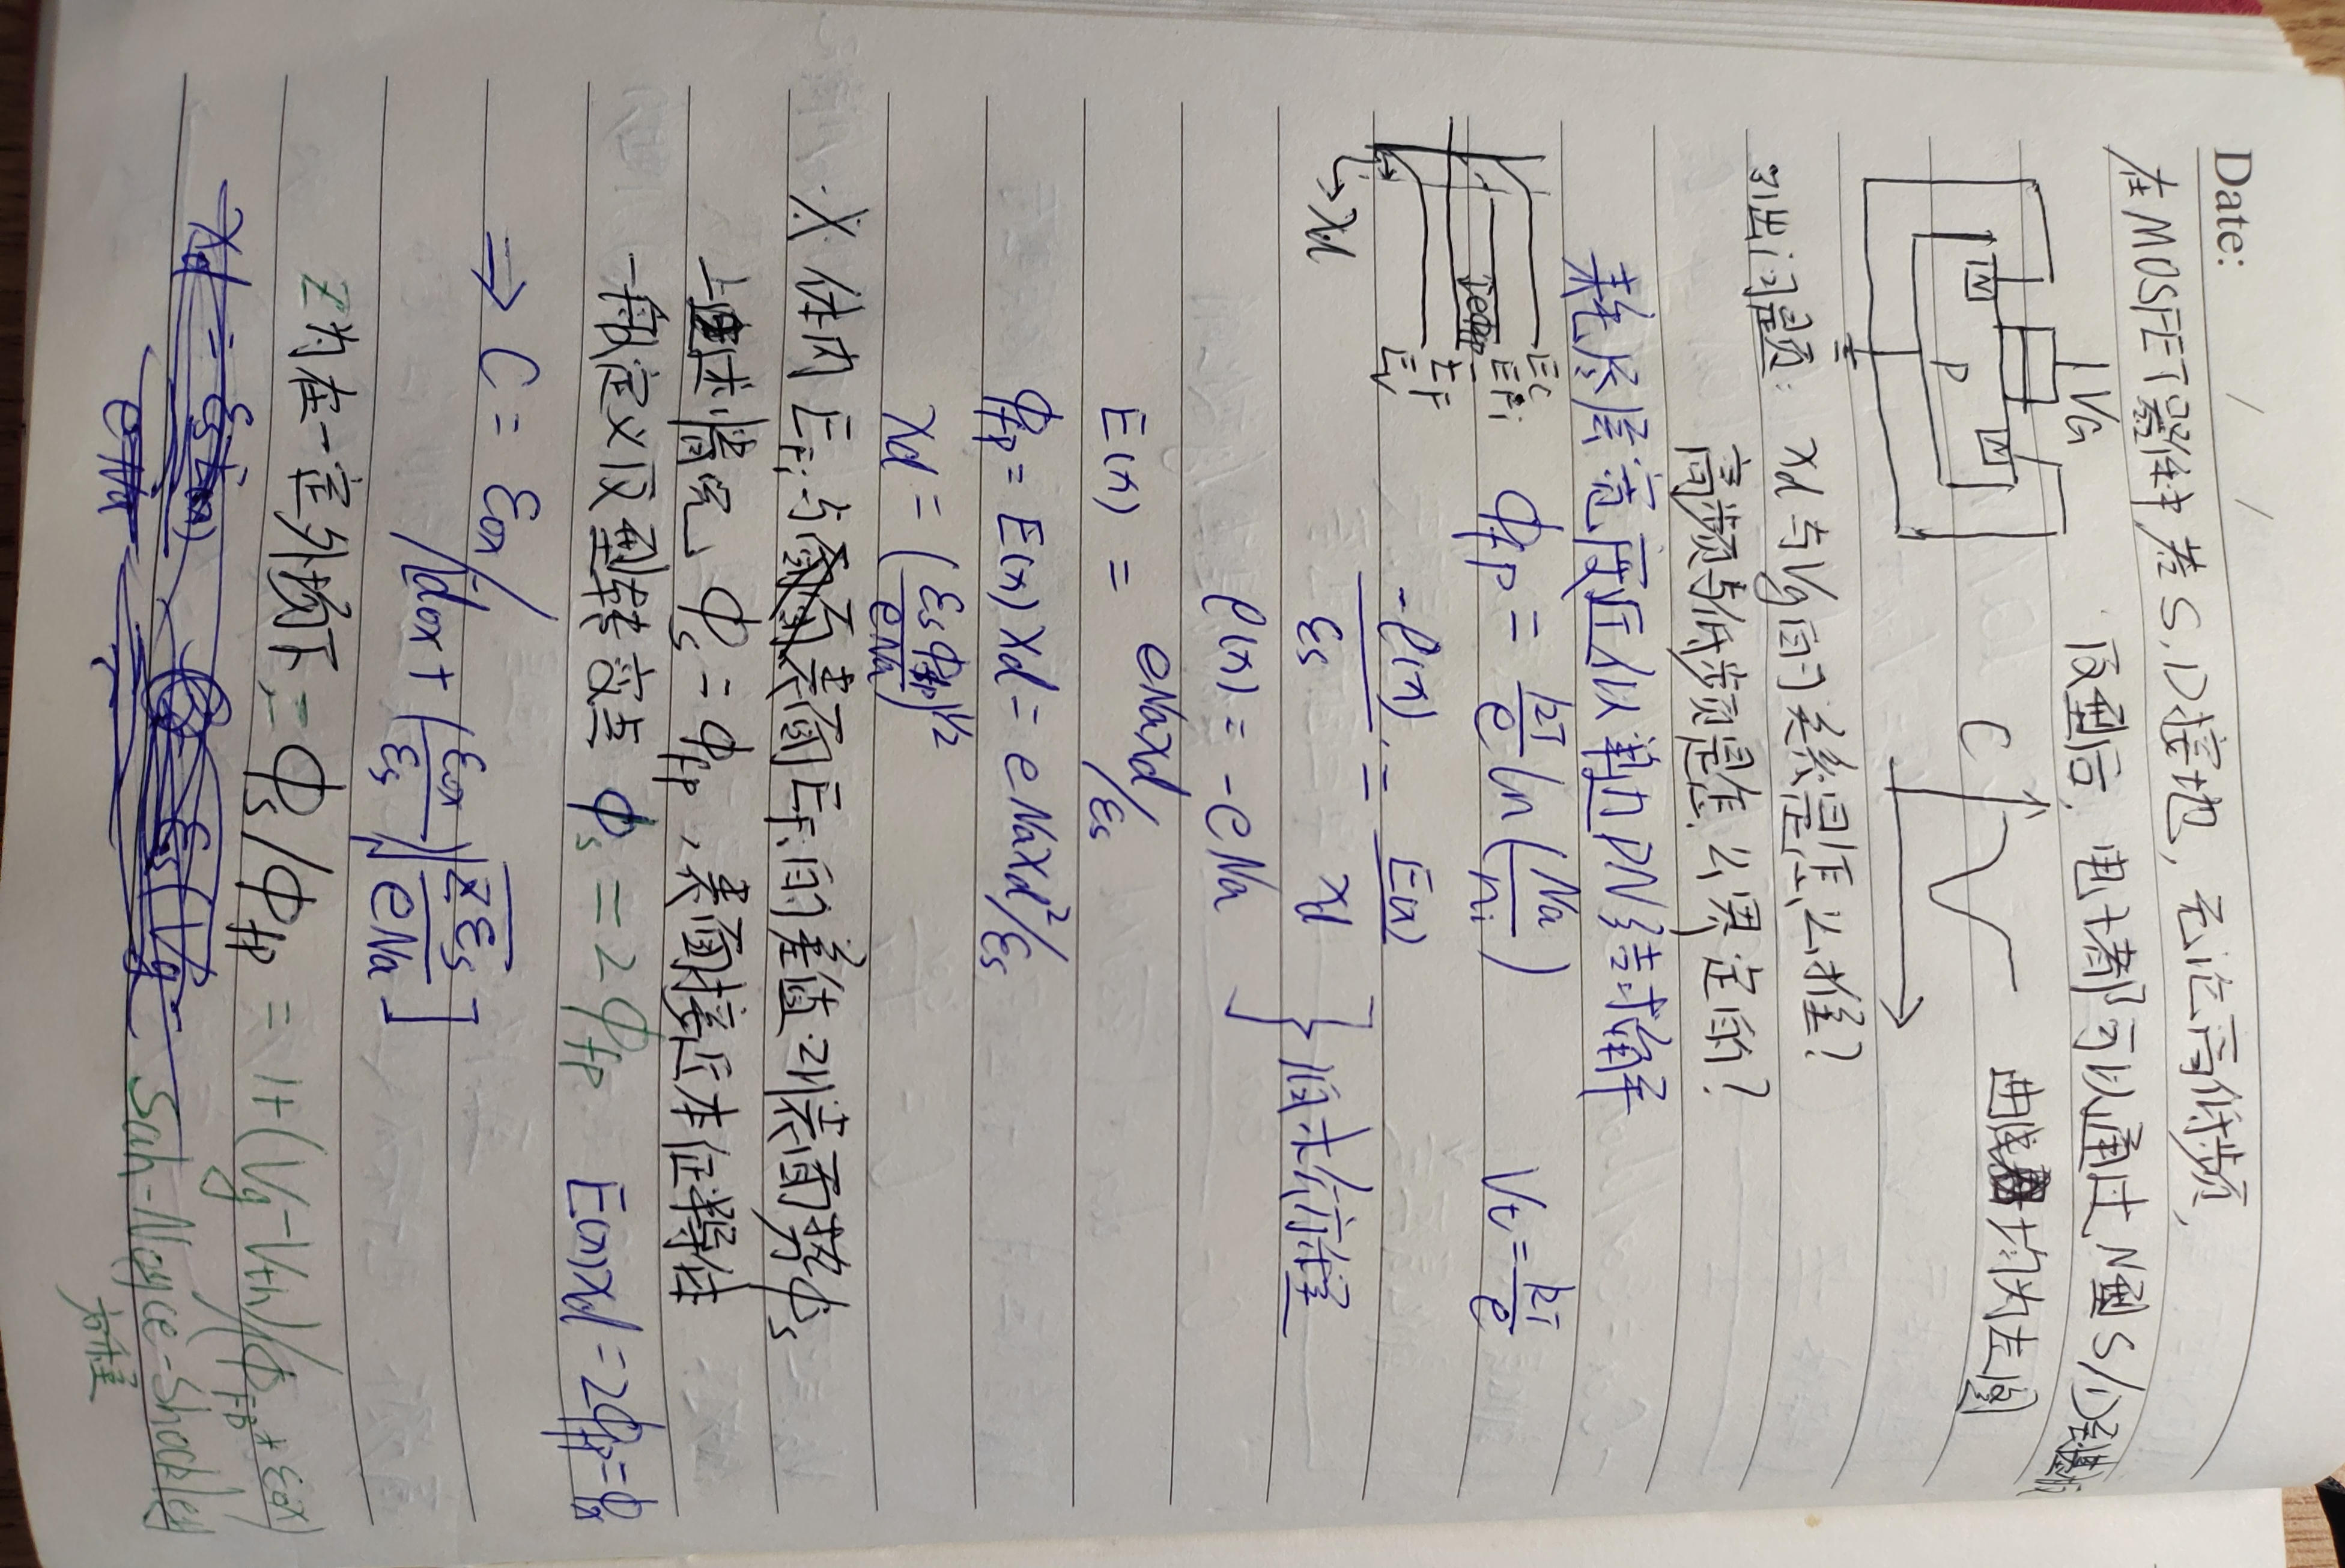 Date: / /
在MOSFET器件中若S,D接地，无论高低频，
反型后，电子都可以通过N型S/D到基板
VG
N
N
P
C
曲线均为左图
引出问题：xd与Vg的关系是怎么推？
高频与低频是怎么界定的？
耗尽层宽度近似单边PN结求解
EC
EFi
eΦfp
EF
EV
xd
Φfp = kT/e ln(Na/ni)
Vt = kT/e
-ρ(x)/εs = E(x)/xd
ρ(x) = -eNa
泊松方程
E(x) = eNaxd/εs
Φfp = E(x)xd = eNaxd²/εs
xd = (εsΦfp/eNa)^1/2
※ 体内EFi与表面EFi的差值叫表面势Φs
上述情况 Φs = Φfp，表面接近本征半导体
一般定义反型转变点 Φs = 2Φfp E(x)xd = 2Φfp = Φs
⇒ C = εox/[dox + (εox/εs)√(zεs/eNa)]
z为在一定外场下，= Φs/Φfp = 1+(Vg-Vth)/(ΦFP * εox)
Sah-Noyce-Shockley
方程